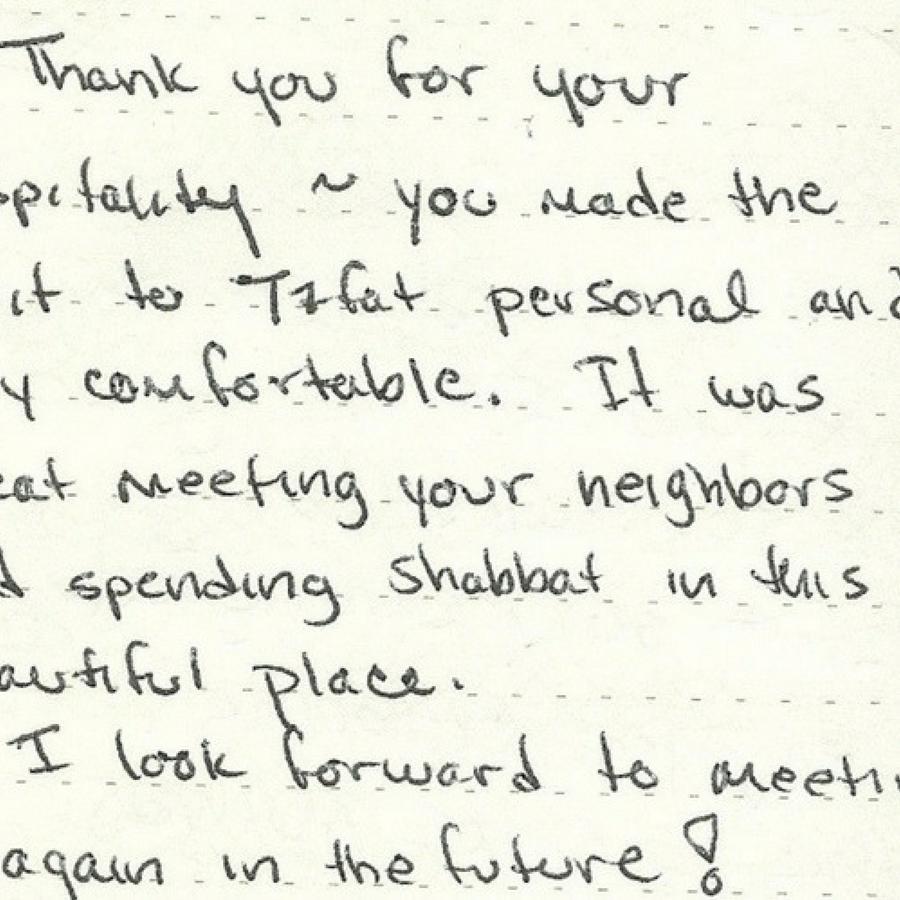 Thank you for your
spitality ~ you made the
it to Tzfat personal and
y comfortable. It was
eat meeting your neighbors
d spending Shabbat in this
autiful place.
I look forward to meetin
again in the future!